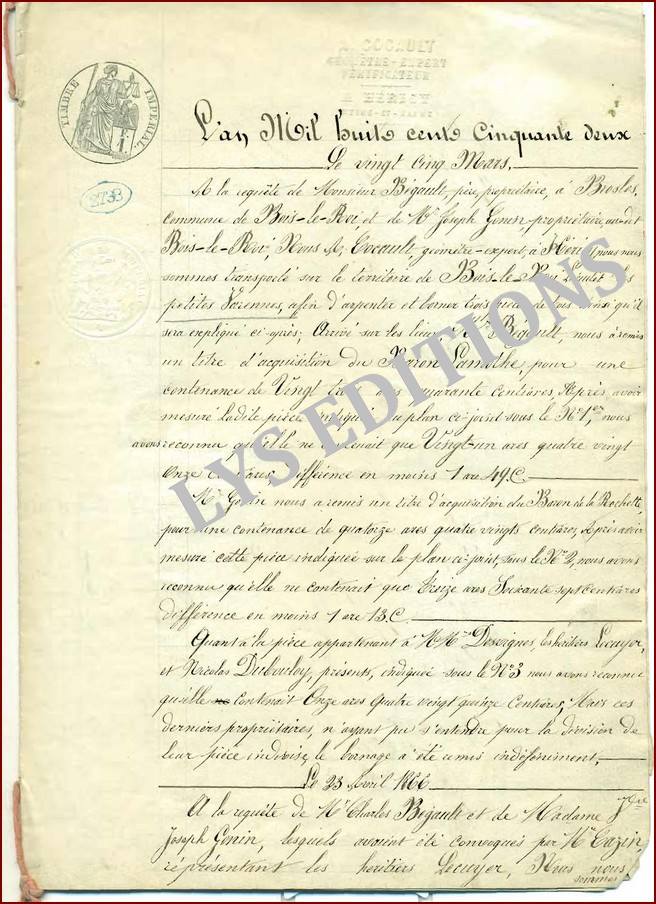 TIMBRE IMPERIAL
1 F.
COCAULT
GÉOMÈTRE-EXPERT
VÉRIFICATEUR
A HÉRICY
SEINE-ET-MARNE
2733
L'an Mil huit cent Cinquante deux
Le vingt cinq Mars,
A la requête de Monsieur Bigault, père, propriétaire, à Brosles,
Commune de Bois-le-Roi, et de Mr Joseph Gonin, propriétaire, au dit
Bois-le-Roi, Nous Cocault, géomètre-expert, à Héri nous nous
sommes transporté sur le territoire de Bois-le-Roi
petites Varennes, afin d'arpenter et borner trois pièces de ainsi qu'il
sera expliqué ci-après; Arrivé sur les lieux Bigault, nous a remis
un titre d'acquisition du Baron Lamothe, pour une
contenance de Vingt trois quarante centiares, Après avoir
mesuré ladite pièce indiquée au plan ci-joint sous le No 1er, nous
avons reconnu qu'elle ne contenait que Vingt-un ares quatre vingt
Onze centiares, différence en moins 1 are 49 C.
Mr Gonin nous a remis un titre d'acquisition du Baron de la Rochette,
pour une contenance de quatorze ares quatre vingts centiares, Après avoir
mesuré cette pièce indiquée sur le plan ci-joint, sous le No 2, nous avons
reconnu qu'elle ne contenait que Treize ares Soixante sept Centiares
différence en moins 1 are 13. C.
Quant à la pièce appartenant à MMrs Desvignes, les héritiers Lecuyer,
et Nicolas Dubouloy, présents, indiquée sous le No 3 nous avons reconnu
qu'elle ne contenait Onze ares Quatre vingt quinze Centiares, Mais ces
derniers propriétaires, n'ayant pu s'entendre pour la division de
leur pièce indivise, le bornage a été remis indéfiniment,
Le 23 Avril 1866
A la requête de Mr Charles Bigault et de Madame Vve
Joseph Gonin, lesquels avaient été convoqués par Mr Cazin
représentant les héritiers Lecuyer, Nous nous
sommes
LYS EDITIONS